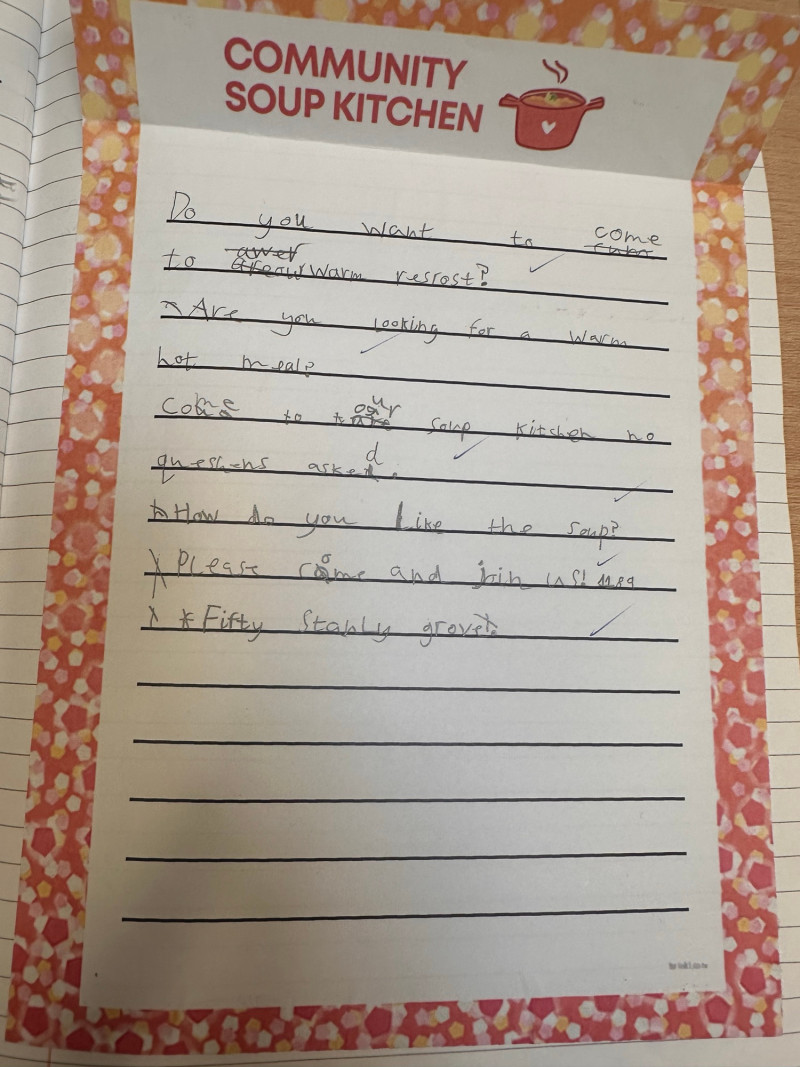 COMMUNITY
SOUP KITCHEN
Do you want to come
to warm resrost?
Are you looking for a warm
hot meal?
Come to our soup kitchen no
queshens asked.
How do you Like the soup?
Please come and join us!
*Fifty Stanly grove.